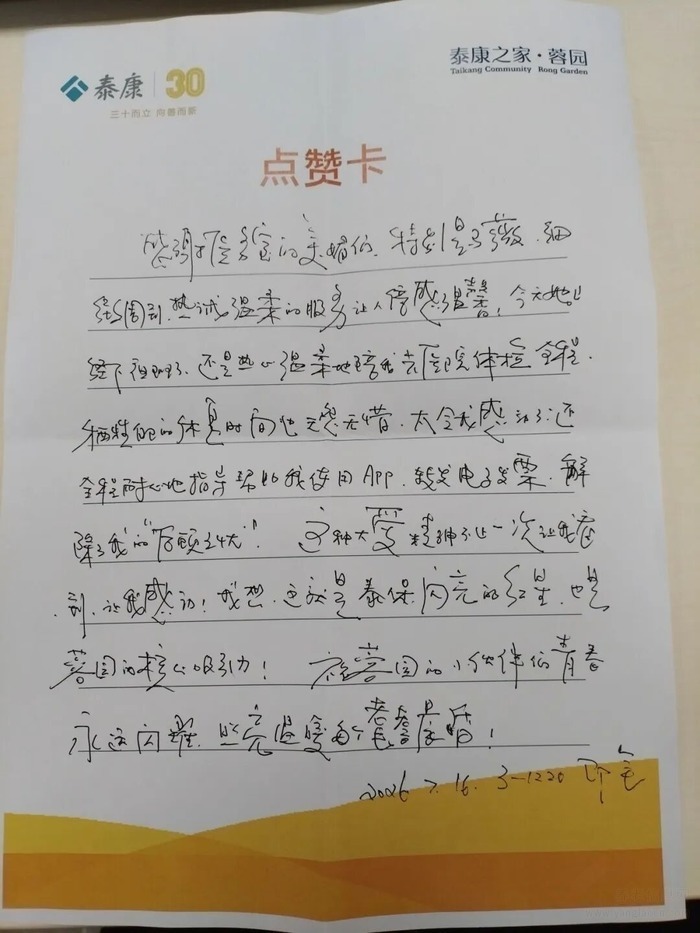 泰康 30
三十而立 向善而新
泰康之家·蓉园
Taikang Community Rong Garden
点赞卡
感谢 的美媚们，特别是 薇，细
致周到、热诚温柔的服务让人倍感温馨，今天她已
经下夜班了，还是热心温柔地陪我去医院体检全程，
牺牲自己的休息时间也无怨无惜，太令我感动了；还
全程耐心地指导帮助我使用App，转发电子发票，解
除了我的“后顾之忧”！ 这种大爱精神不止一次让我
到，让我感动！我想，这就是泰康闪亮的红星，也是
蓉园的核心吸引力！ 祝蓉园的小伙伴们青春
永远闪耀，照亮温暖每个
2026 7.16. 3-1220